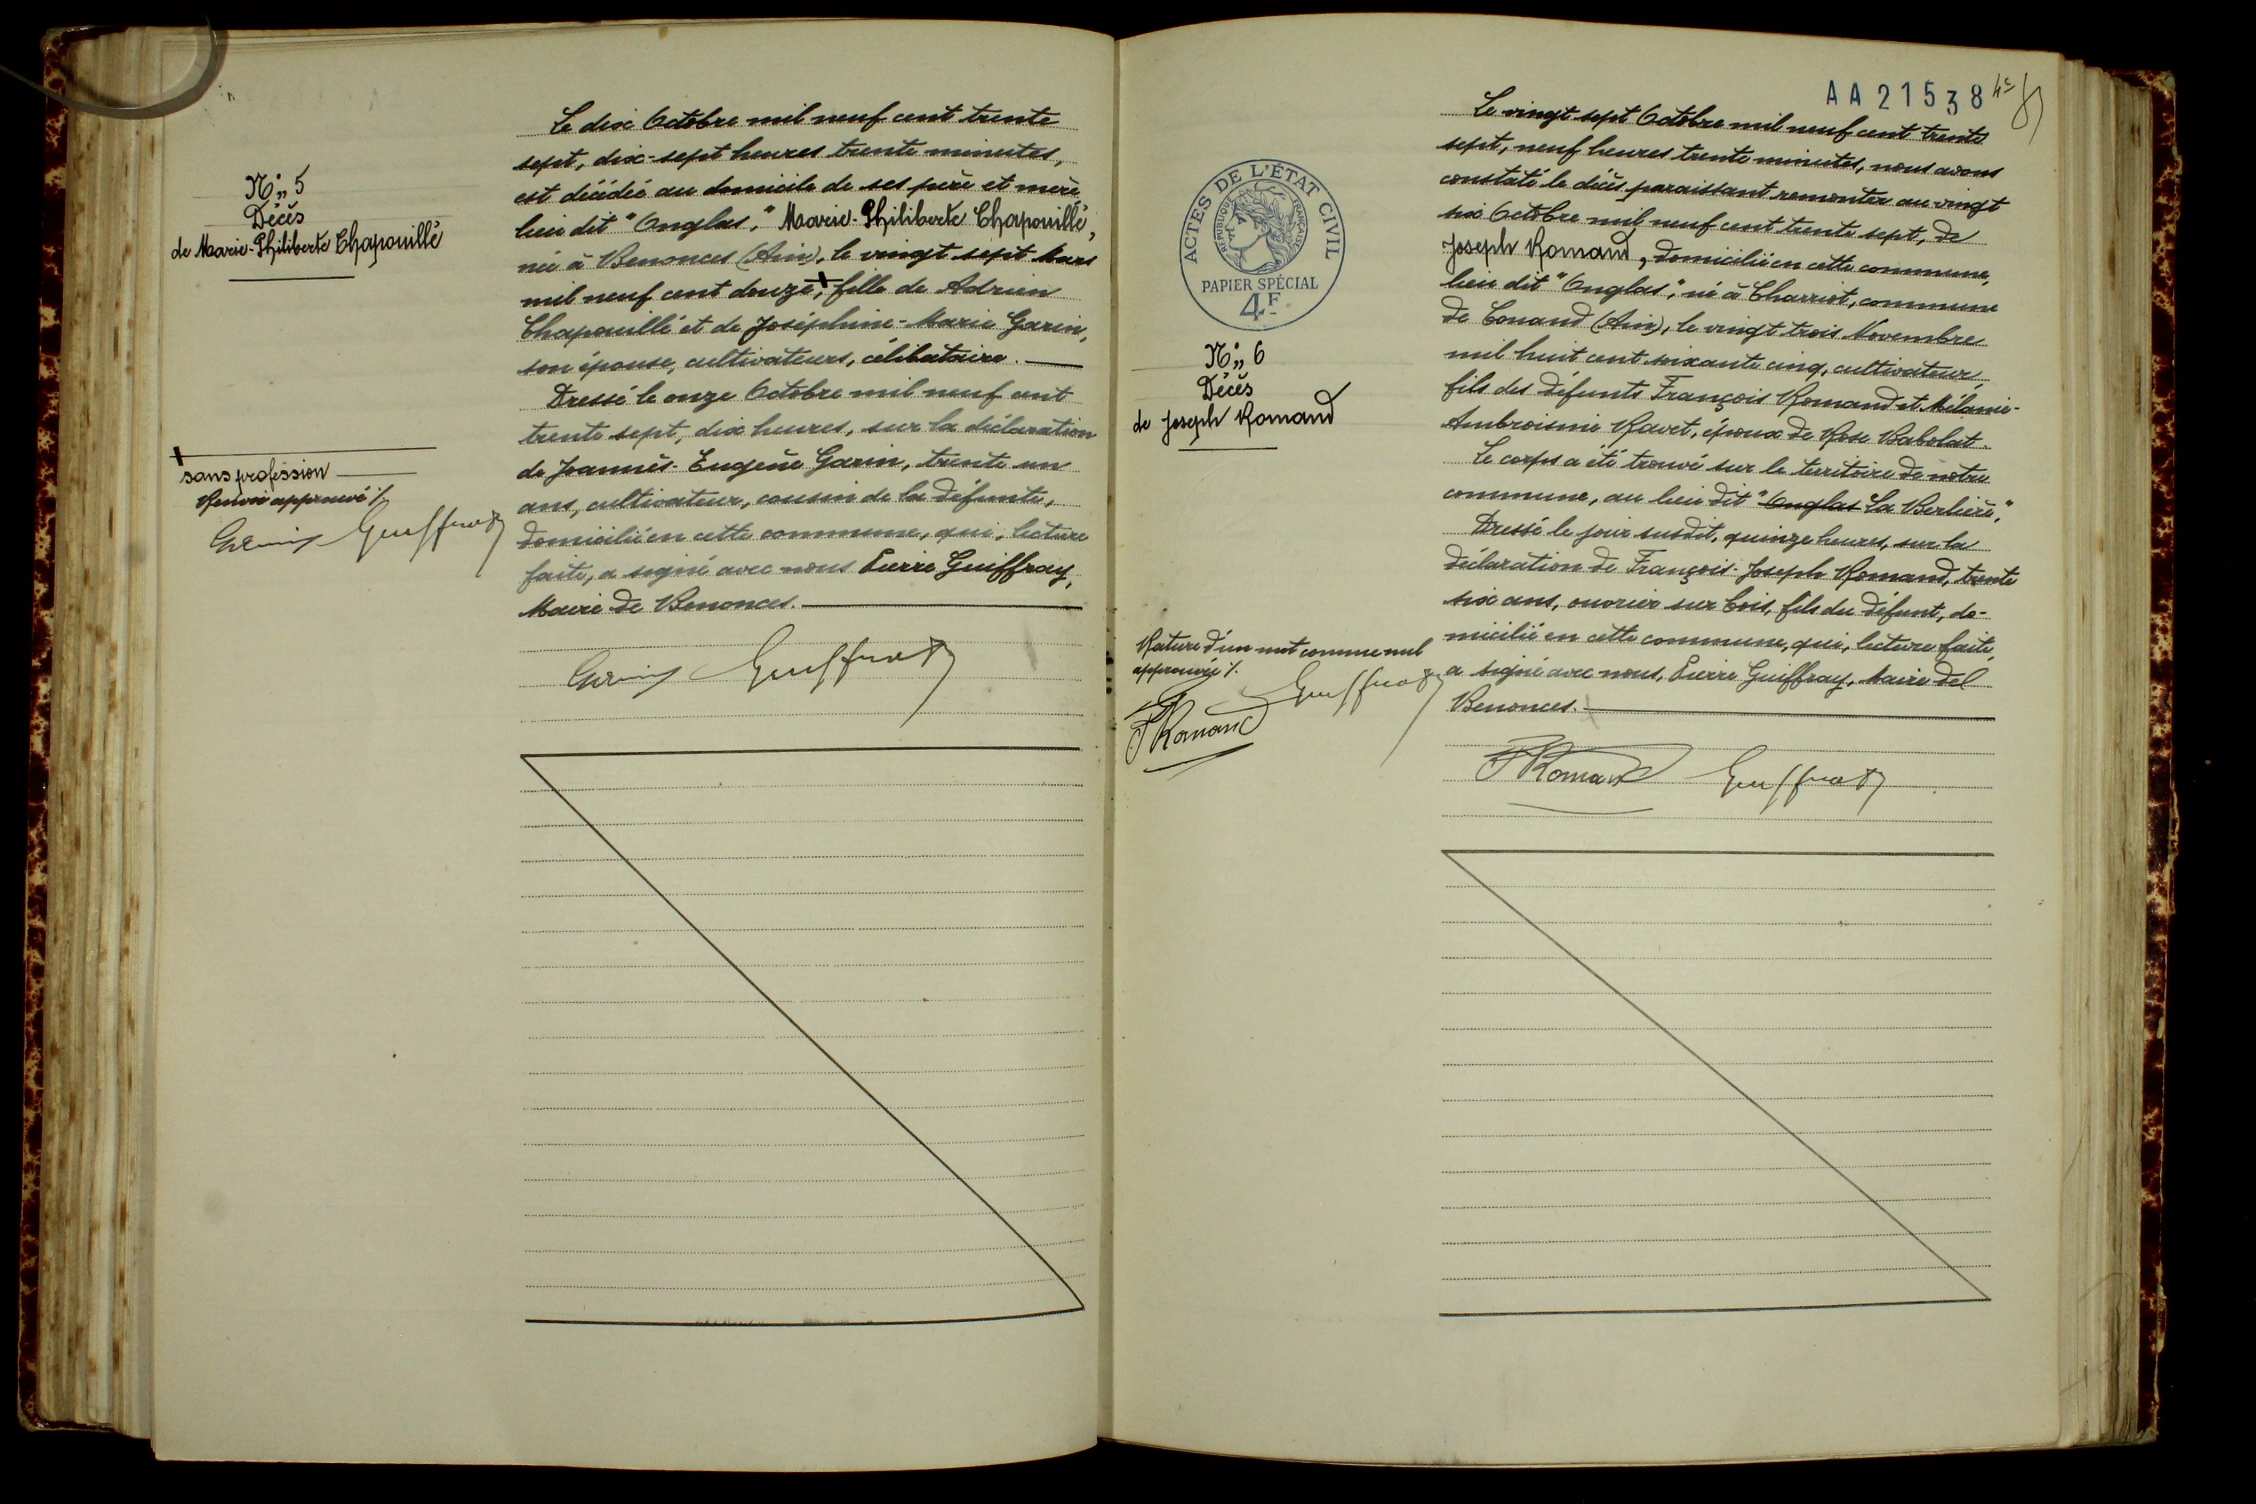 N° 5
Décès
de Marie-Philiberte Chapouillé
sans profession
Renvoi approuvé ./.
Le dix Octobre mil neuf cent trente
sept, dix-sept heures trente minutes,
est décédée au domicile de ses père et mère
lieu dit "Onglas", Marie-Philiberte Chapouillé,
née à Benonces (Ain), le vingt sept Mars
mil neuf cent douze, fille de Adrien
Chapouillé et de Joséphine-Marie Garin,
son épouse, cultivateurs, célibataire.
Dressé le onze Octobre mil neuf cent
trente sept, dix heures, sur la déclaration
de Joannès-Eugène Garin, trente un
ans, cultivateur, cousin de la défunte,
domicilié en cette commune, qui, lecture
faite, a signé avec nous Pierre Guiffray,
Maire de Benonces.
Garin Guiffray
AA21538
ACTES DE L'ÉTAT CIVIL
RÉPUBLIQUE FRANÇAISE
PAPIER SPÉCIAL
4F
N° 6
Décès
de Joseph Romand
Rature d'un mot comme nul
approuvée ./.
Romand Guiffray
Le vingt sept Octobre mil neuf cent trente
sept, neuf heures trente minutes, nous avons
constaté le décès paraissant remonter au vingt
six Octobre mil neuf cent trente sept, de
Joseph Romand, domicilié en cette commune,
lieu dit "Onglas", né à Charriot, commune
de Conand (Ain), le vingt trois Novembre
mil huit cent soixante cinq, cultivateur
fils des défunts François Romand et Mélanie-
Ambroisine Ravet, époux de Rose Babolat.
Le corps a été trouvé sur le territoire de notre
commune, au lieu dit "Onglas La Berlière,"
Dressé le jour susdit, quinze heures, sur la
déclaration de François-Joseph Romand, trente
six ans, ouvrier sur bois, fils du défunt, do-
micilié en cette commune, qui, lecture faite,
a signé avec nous, Pierre Guiffray, Maire de
Benonces.
Romand Guiffray